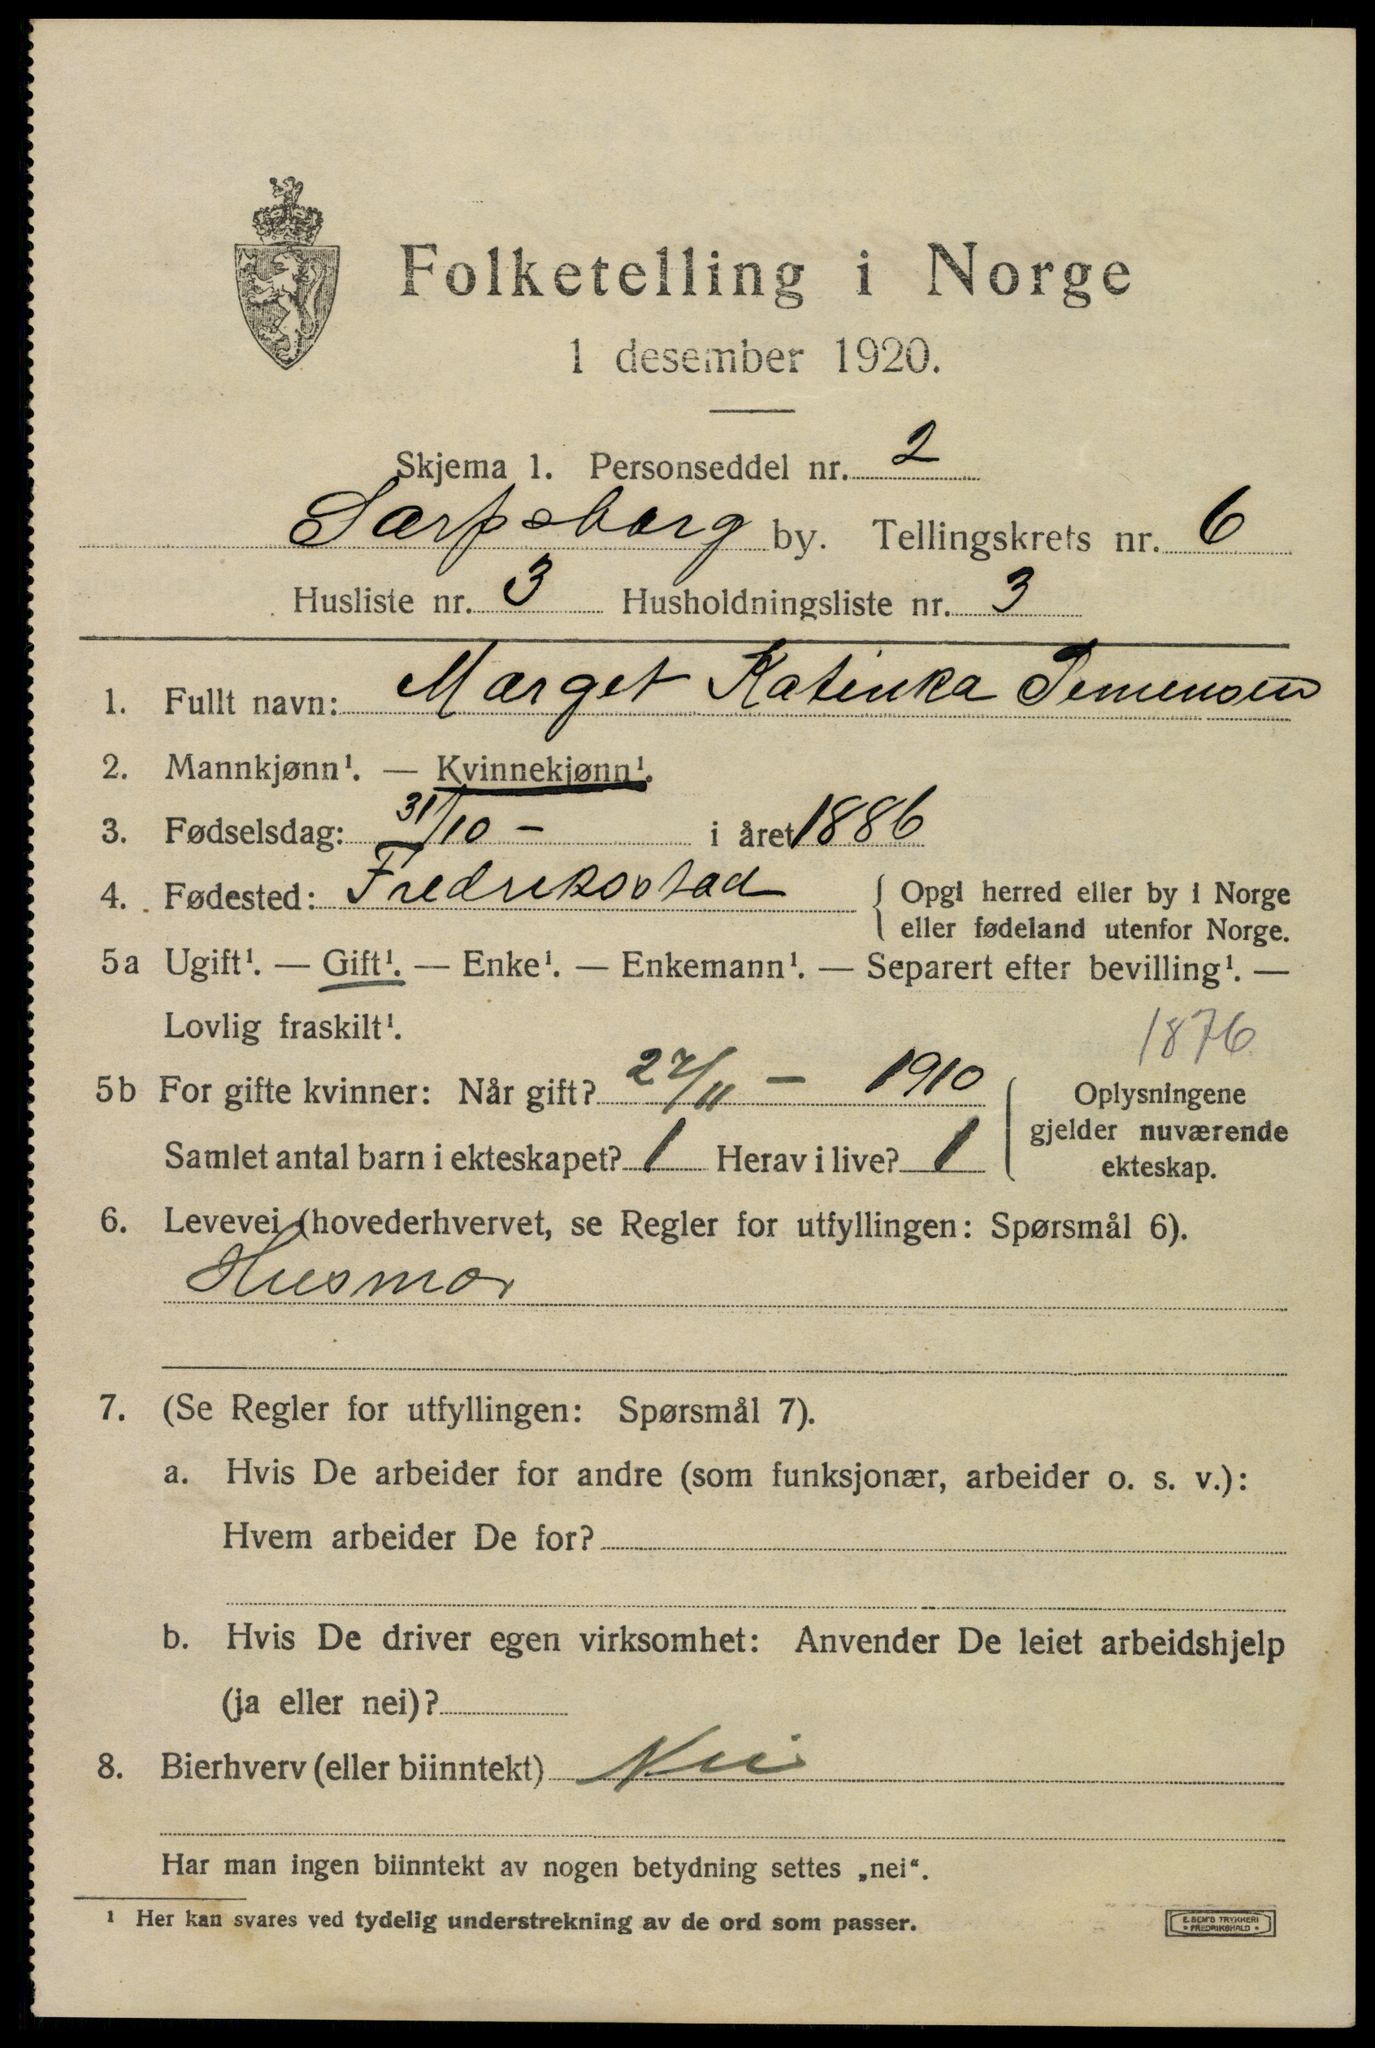 Folketelling i Norge
1 desember 1920.
Skjema 1. Personseddel nr. 2
Sarpsborg by. Tellingskrets nr. 6
Husliste nr. 3 Husholdningsliste nr. 3
1. Fullt navn: Marget Katinka
2. Mannkjønn¹. — Kvinnekjønn¹.
3. Fødselsdag: 31/10 - i året 1886
4. Fødested: Fredriksstad { Opgi herred eller by i Norge
eller fødeland utenfor Norge.
5a Ugift¹. — Gift¹. — Enke¹. — Enkemann¹. — Separert efter bevilling¹. —
Lovlig fraskilt¹.
1876
5b For gifte kvinner: Når gift? 27/11 - 1910 { Oplysningene
gjelder nuværende
Samlet antal barn i ekteskapet? 1 Herav i live? 1
ekteskap.
6. Levevei (hovederhvervet, se Regler for utfyllingen: Spørsmål 6).
Husmor
7. (Se Regler for utfyllingen: Spørsmål 7).
a. Hvis De arbeider for andre (som funksjonær, arbeider o. s. v.):
Hvem arbeider De for?
b. Hvis De driver egen virksomhet: Anvender De leiet arbeidshjelp
(ja eller nei)?
8. Bierhverv (eller biinntekt) Nei
Har man ingen biinntekt av nogen betydning settes „nei“.
¹ Her kan svares ved tydelig understrekning av de ord som passer.
E. SEM'S TRYKKERI
* FREDRIKSHALD *